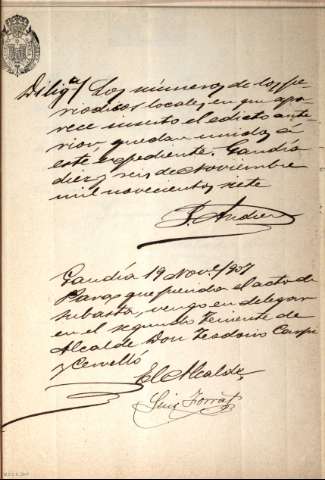 Dilig.ª/ Los números de los pe-
riodicos locales en que apa-
rece inserto el edicto ante-
rior quedan unidos a
este expediente. Gandía
diez y seis de Noviembre
mil novecientos siete
Gandía 19 Nove/907
Para que presida el acto de
subasta, vengo en delegar
en el segundo Teniente de
Alcalde Don Teodoro
y Cervelló
El Alcalde,